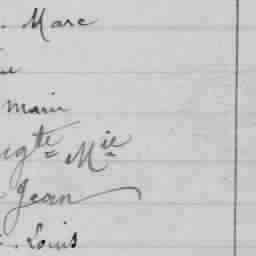 . Marc
e
Marie
gte Mie
Jean
. Louis